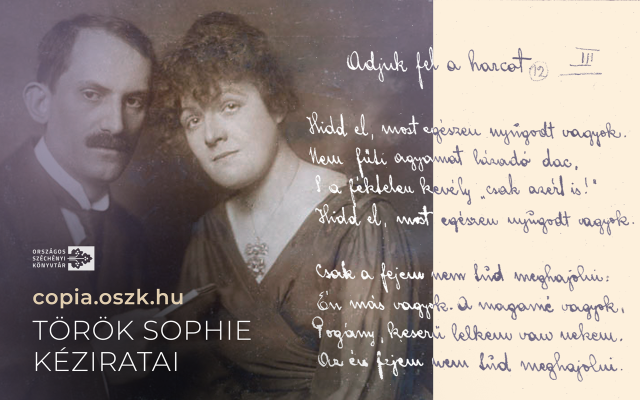 Adjuk fel a harcot
12
III
Hidd el, most egészen nyúgodt vagyok.
Nem fűti agyamat lázadó dac,
S a féktelen kevély „csak azért is!"
Hidd el, most egészen nyúgodt vagyok.
Csak a fejem nem tud meghajolni:
Én más vagyok. A magamé vagyok,
Pogány, keserű lelkem van nekem.
Az én fejem nem tud meghajolni.
ORSZÁGOS
SZÉCHÉNYI
KÖNYVTÁR
copia.oszk.hu
TÖRÖK SOPHIE
KÉZIRATAI